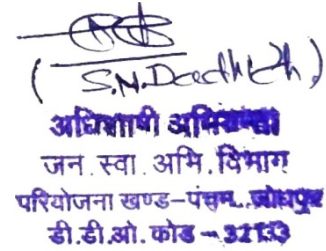 ( S.N. Dadhich )
अधिशाषी अभियन्ता
जन. स्वा. अभि. विभाग
परियोजना खण्ड-पंचम जोधपुर
डी.डी.ओ. कोड - 32133